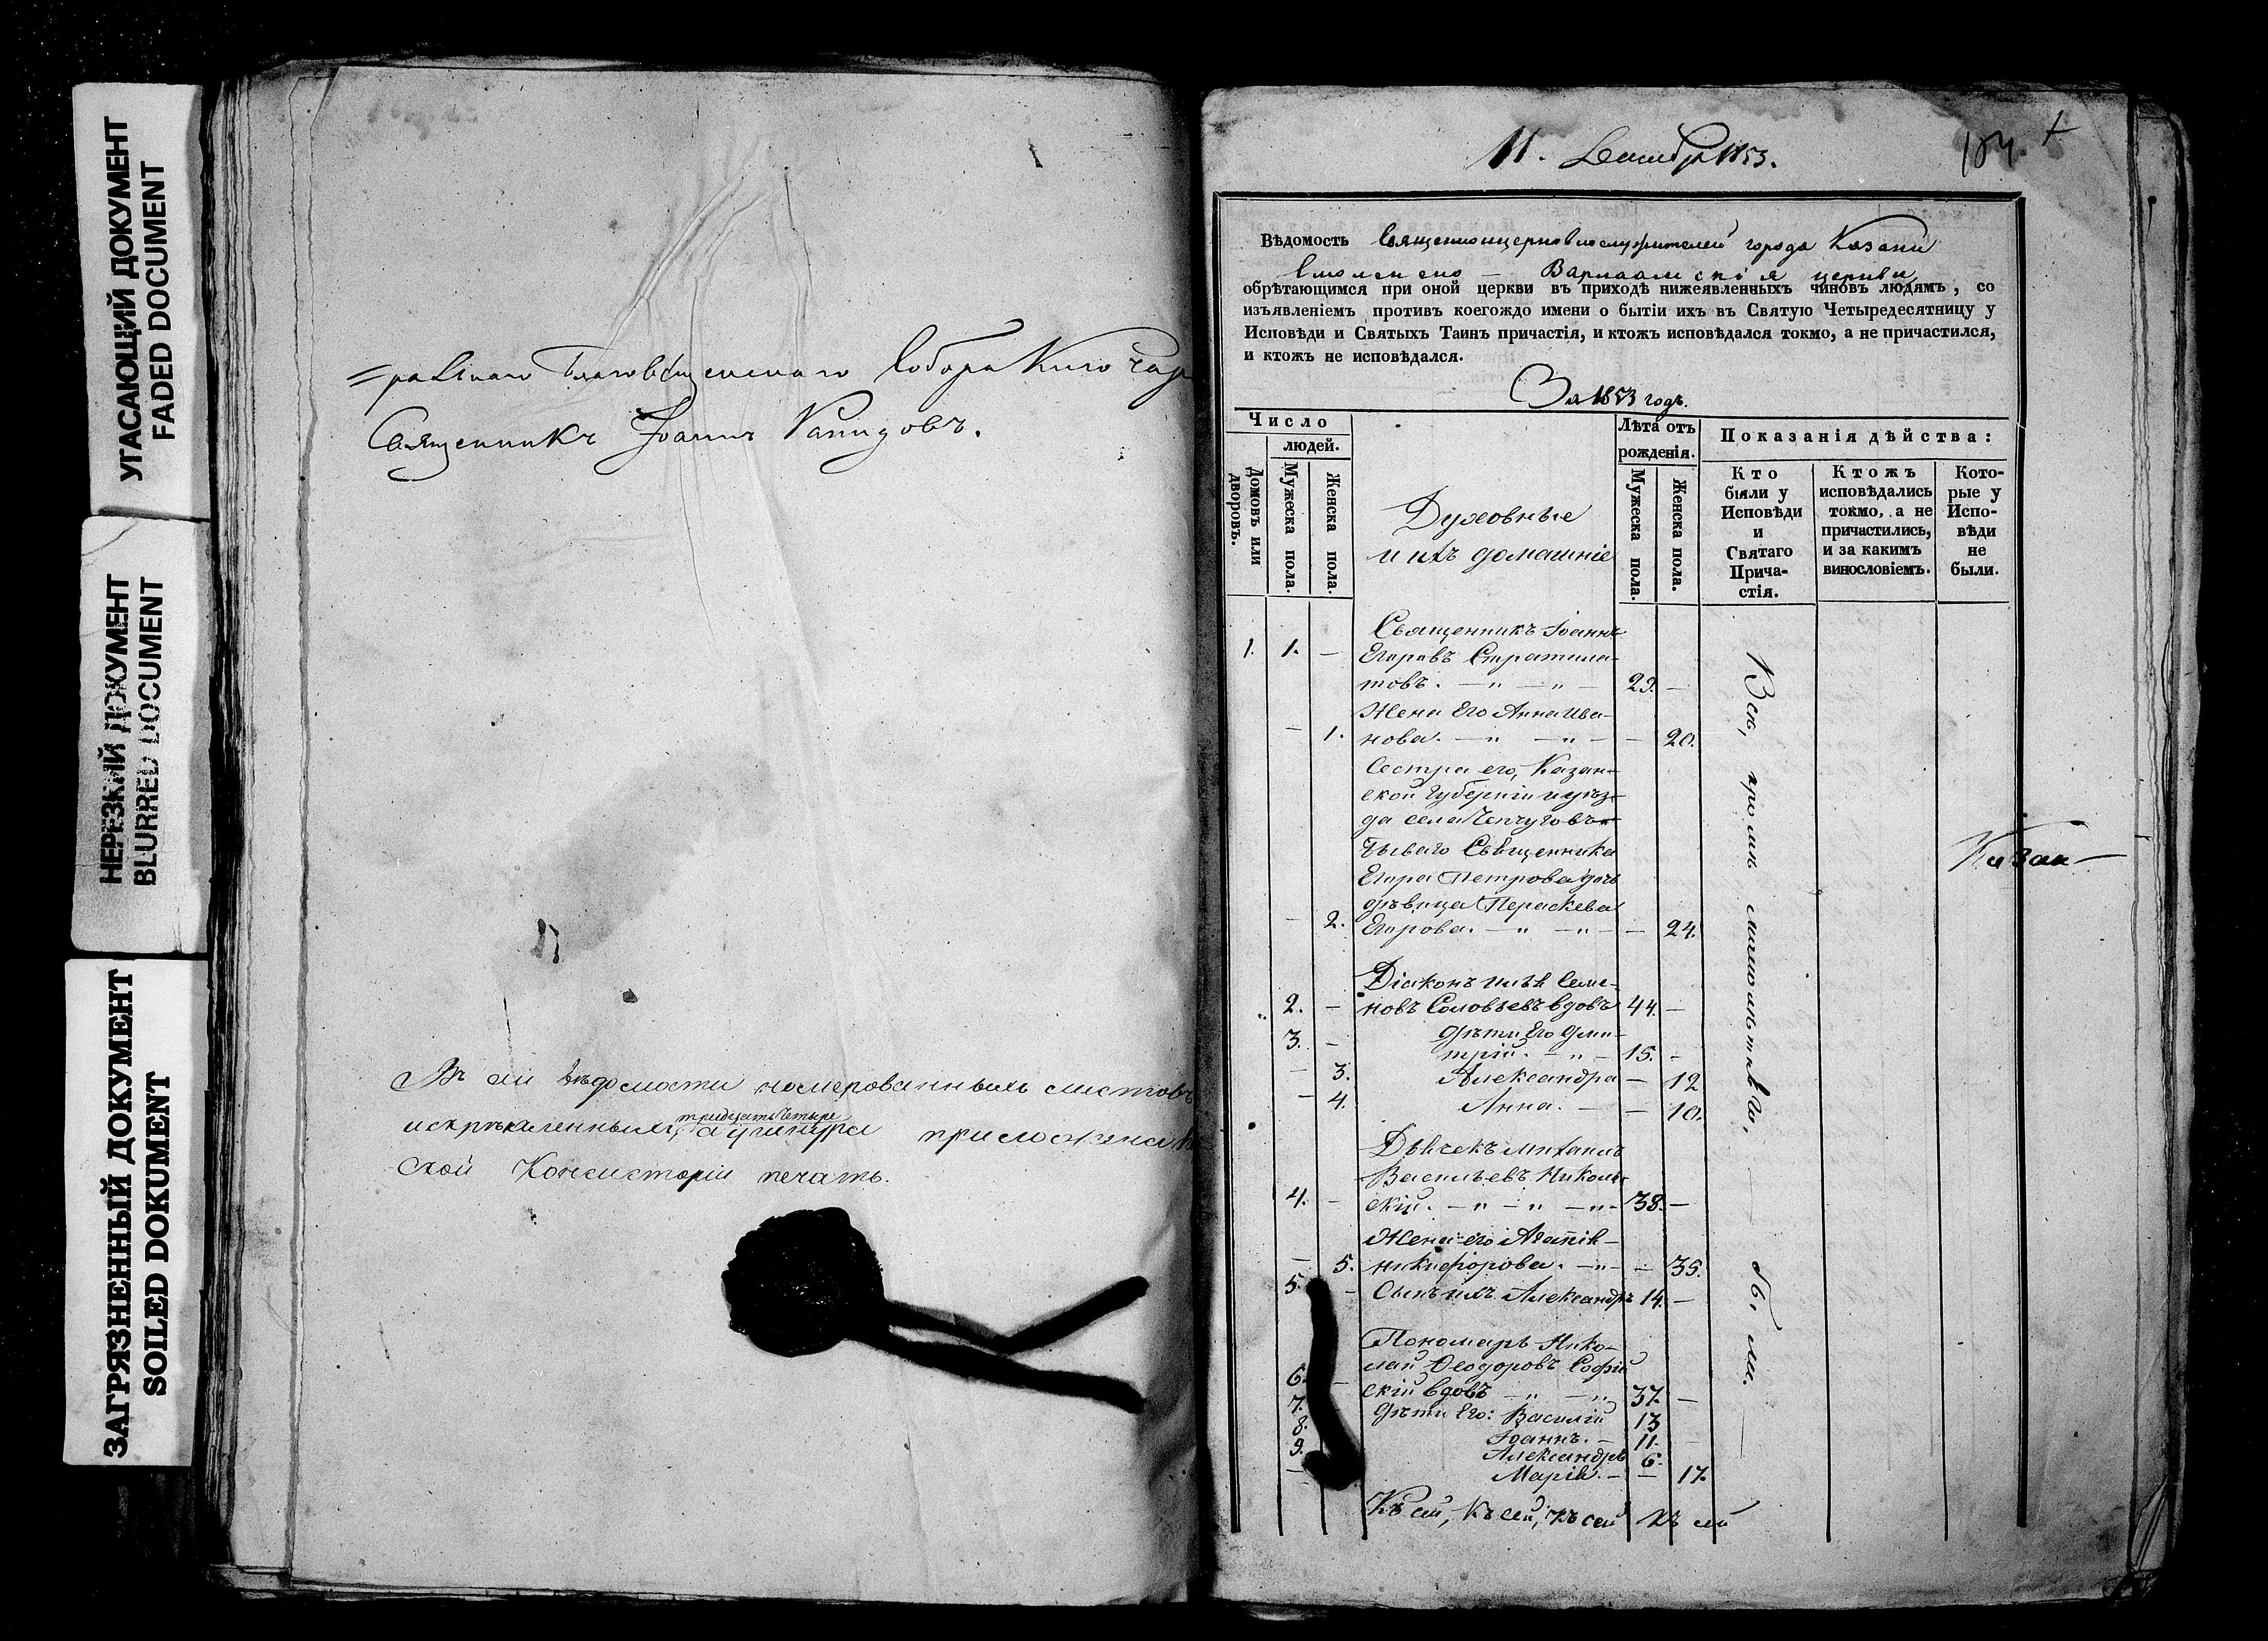 УГАСАЮЩИЙ ДОКУМЕНТ
FADED DOCUMENT
НЕРЕЗКИЙ ДОКУМЕНТ
BLURRED DOCUMENT
ЗАГРЯЗНЕННЫЙ ДОКУМЕНТ
SOILED DOKUMENT
Благовѣщенскаго Собора Ключарь
Священникъ Іоаннъ
Въ сей вѣдомости номерованныхъ листовъ
тридцать четыре
и скрѣпленныхъ, а у шнура приложена
ской Консисторіи печать.
11. Декабр 1853.
Вѣдомость Священноцерковнослужителей города Казани
Смоленско – Варлаамскія церкви
обрѣтающимся при оной церкви въ приходѣ нижеявленныхъ чиновъ людямъ, со
изъявленіемъ противъ коегождо имени о бытіи ихъ въ Святую Четыредесятницу у
Исповѣди и Святыхъ Таинъ причастія, и ктожъ исповѣдался токмо, а не причастился,
и ктожъ не исповѣдался.
За 1853 годъ.
Число
людей.
Домовъ или дворовъ.
Мужеска пола.
Женска пола.
Духовные
и ихъ домашніе
Лѣта отъ
рожденія.
Мужеска пола.
Женска пола.
Показанія дѣйства:
Кто
были у
Исповѣди
и
Святаго
Прича-
стія.
Ктожъ
исповѣдались
токмо, а не
причастились,
и за какимъ
винословіемъ.
Кото-
рые у
Испо-
вѣди
не
были.
Священникъ Іоаннъ
1. 1. – Егоровъ Стратила-
товъ. – " – " – 29. –
Жена Его Анна Ива-
– 1. нова. – " – " – – 20.
Сестра его, Казан-
ской Губерніи и уѣз-
да села Чепчуговъ
бывшаго Священника
Егора Петрова дочь
дѣвица Параскева
– 2. Егорова. – " – " – – 24.
Діаконъ Илья Семе-
2. – новъ Соловьевъ вдовъ 44. –
3. – Дѣти Его Дми-
трій. – " – 15. –
– 3. Александра – 12
– 4. Анна. – – 10.
Дьячекъ Михаилъ
Васильевъ Николь-
4. – скій. – " – " – " – 38. –
Жена его Агапія
– 5. Никифорова. – " – – 35.
5. – Сынъ ихъ Александръ 14. –
Пономарь Нико-
лай Ѳеодоровъ Софій
6. – скій вдовъ – " – " 37. –
7. Дѣти Его: Василій 13
8. Іоаннъ. – 11. –
9. Александръ 6.
– Марія. – – 17.
Всѣ, кромѣ малолѣтныхъ, – были. –
Казан–
Къ сей, Къ сей, Къ сей Къ сей